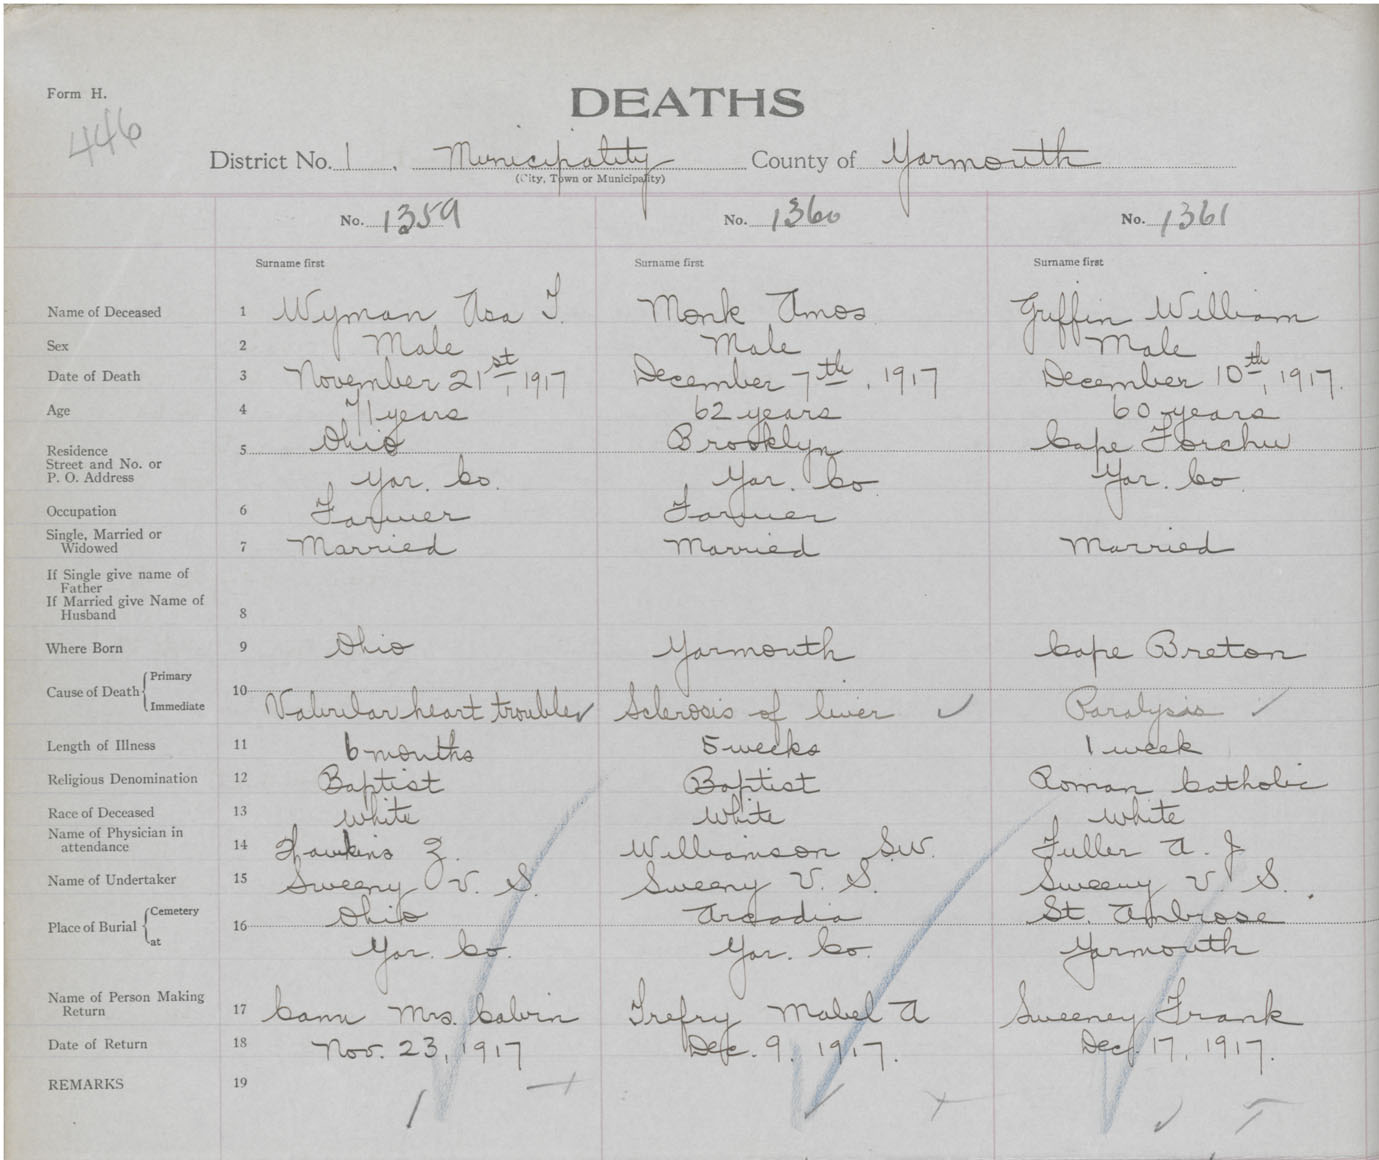 Form H.
446
DEATHS
District No. 1, Municipality County of Yarmouth
(City, Town or Municipality)
No. 1359 No. 1360 No. 1361
Surname first Surname first Surname first
Name of Deceased 1 Wyman Asa T. Monk Amos Griffin William
Sex 2 Male Male Male
Date of Death 3 November 21st, 1917 December 7th, 1917 December 10th, 1917.
Age 4 71 years 62 years 60 years
Residence 5 Ohio Brooklyn Cape Forchu
Street and No. or
P. O. Address Yar. Co. Yar. Co. Yar. Co.
Occupation 6 Farmer Farmer
Single, Married or
Widowed 7 Married Married Married
If Single give name of
Father
If Married give Name of
Husband 8
Where Born 9 Ohio Yarmouth Cape Breton
Cause of Death Primary 10
Immediate Valvular heart trouble Sclerosis of liver Paralysis
Length of Illness 11 6 months 5 weeks 1 week
Religious Denomination 12 Baptist Baptist Roman Catholic
Race of Deceased 13 White White White
Name of Physician in
attendance 14 Hawkins Z. Williamson S.W. Fuller A. J.
Name of Undertaker 15 Sweeny V. S. Sweeny V. S. Sweeny V. S.
Place of Burial Cemetery 16 Ohio Arcadia St. Ambrose
at Yar. Co. Yar. Co. Yarmouth
Name of Person Making
Return 17 Cann Mrs. Calvin Trefry Mabel A Sweeney Frank
Date of Return 18 Nov. 23, 1917 Dec. 9, 1917. Dec. 17, 1917.
REMARKS 19